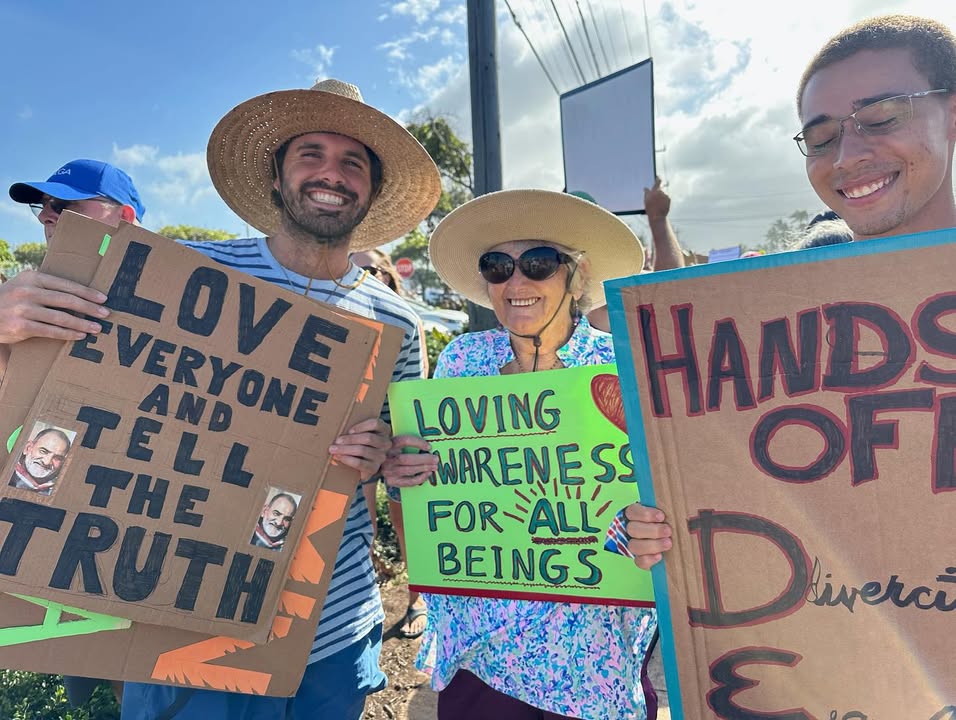 LOVE
EVERYONE
AND
TELL
THE
TRUTH
LOVING
AWARENESS
FOR ALL
BEINGS
HANDS
OFF
D divercit
E